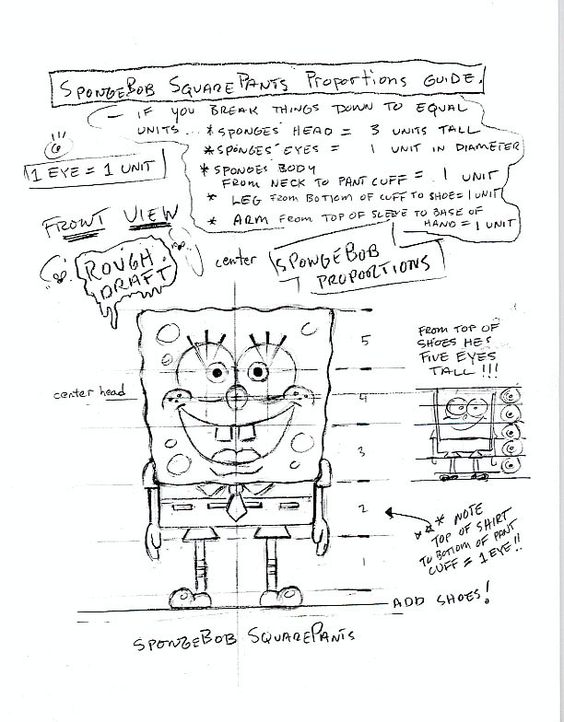 SPONGEBOB SQUAREPANTS PROPORTIONS GUIDE.
- IF YOU BREAK THINGS DOWN TO EQUAL
UNITS... * SPONGES' HEAD = 3 UNITS TALL
* SPONGES' EYES = 1 UNIT IN DIAMETER
* SPONGES BODY
FROM NECK TO PANT CUFF = 1 UNIT
* LEG FROM BOTTOM OF CUFF TO SHOE = 1 UNIT
* ARM FROM TOP OF SLEEVE TO BASE OF
HAND = 1 UNIT
1 EYE = 1 UNIT
FRONT VIEW
ROUGH
DRAFT
center
SPONGEBOB
PROPORTIONS
5
FROM TOP OF
SHOES HES
FIVE EYES
TALL!!!
center head
4
3
2
*** NOTE
TOP OF SHIRT
TO BOTTOM OF PANT
CUFF = 1 EYE!!
1
ADD SHOES!
SPONGEBOB SQUAREPANTS